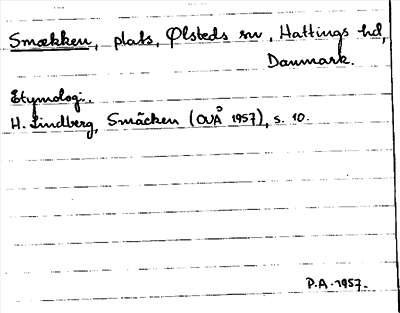 Smækken, plats, Ølsteds sn, Hattings hd,
Danmark.
Etymologi.
H. Lindberg, Smäcken (OUÅ 1957), s. 10.
P.A. 1957.